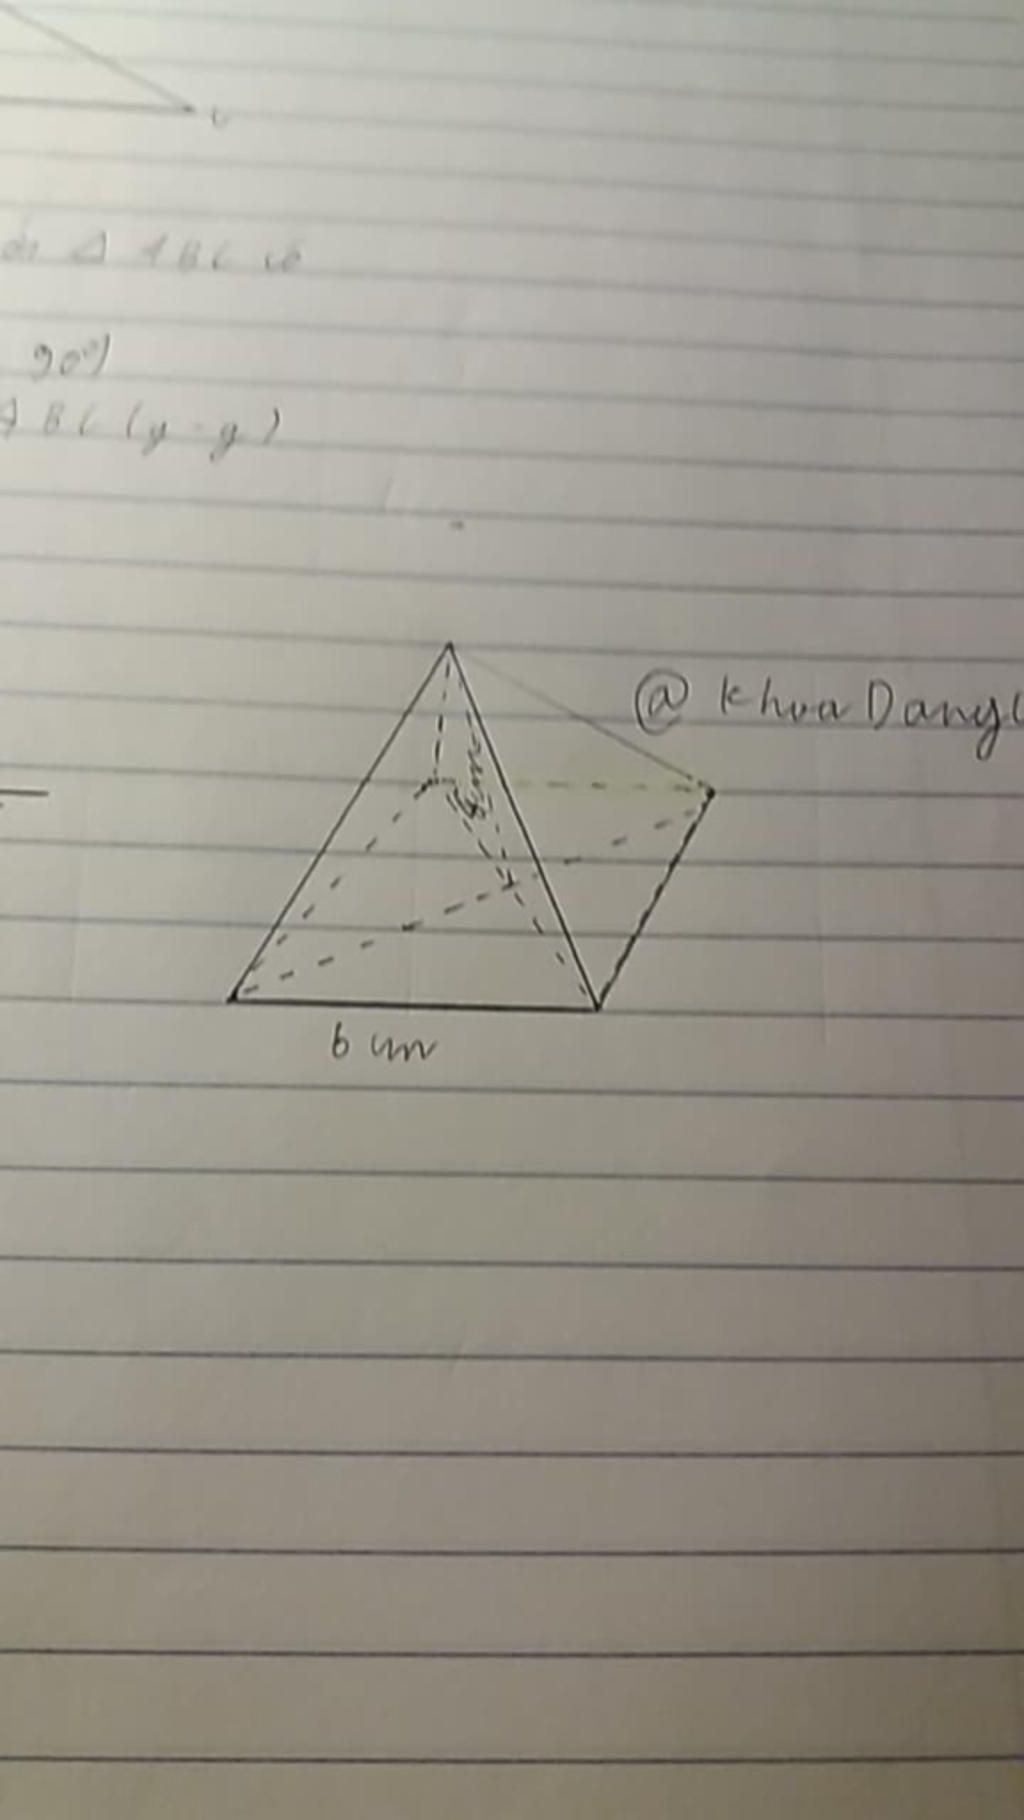 Δ ABC có
90°)
ABC (g-g)
@ KhoaDang
6 cm